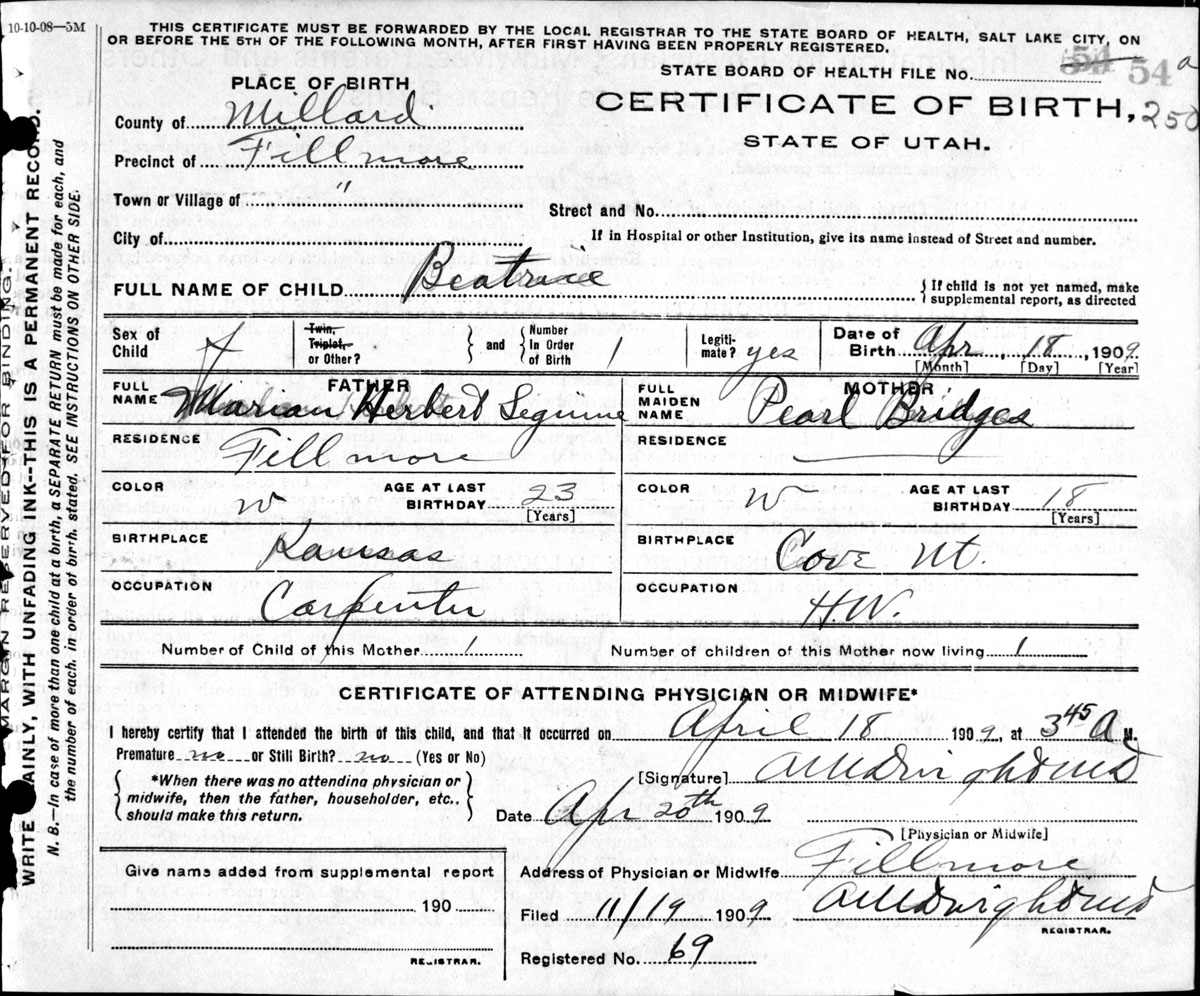 10-10-08—5M
THIS CERTIFICATE MUST BE FORWARDED BY THE LOCAL REGISTRAR TO THE STATE BOARD OF HEALTH, SALT LAKE CITY, ON
OR BEFORE THE 5TH OF THE FOLLOWING MONTH, AFTER FIRST HAVING BEEN PROPERLY REGISTERED.
STATE BOARD OF HEALTH FILE No. 54 54 a
PLACE OF BIRTH
CERTIFICATE OF BIRTH, 250
STATE OF UTAH.
County of Millard
Precinct of Fillmore
Town or Village of "
Street and No.
City of
If in Hospital or other Institution, give its name instead of Street and number.
FULL NAME OF CHILD Beatrice
{ If child is not yet named, make
supplemental report, as directed
Sex of Child F
Twin, Triplet, or Other? } and { Number In Order of Birth 1
Legiti-mate? yes
Date of Birth Apr, 18, 1909
[Month] [Day] [Year]
FATHER
FULL NAME Marian Herbert Seguine
MOTHER
FULL MAIDEN NAME Pearl Bridges
RESIDENCE Fillmore
RESIDENCE
COLOR W AGE AT LAST BIRTHDAY 23 [Years]
COLOR W AGE AT LAST BIRTHDAY 18 [Years]
BIRTHPLACE Kansas
BIRTHPLACE Cove
OCCUPATION Carpenter
OCCUPATION H.W.
Number of Child of this Mother 1
Number of children of this Mother now living 1
CERTIFICATE OF ATTENDING PHYSICIAN OR MIDWIFE*
I hereby certify that I attended the birth of this child, and that it occurred on April 18 1909, at 3 45 A M.
Premature no or Still Birth? no (Yes or No)
{ *When there was no attending physician or
midwife, then the father, householder, etc.,
should make this return. }
[Signature]
Date Apr 20th 1909
[Physician or Midwife]
Give name added from supplemental report
190
REGISTRAR.
Address of Physician or Midwife Fillmore
Filed 11/19 1909
REGISTRAR.
Registered No. 69
MARGIN RESERVED FOR BINDING.
WRITE PLAINLY, WITH UNFADING INK--THIS IS A PERMANENT RECORD.
N. B.—In case of more than one child at a birth, a SEPARATE RETURN must be made for each, and
the number of each, in order of birth, stated. SEE INSTRUCTIONS ON OTHER SIDE.